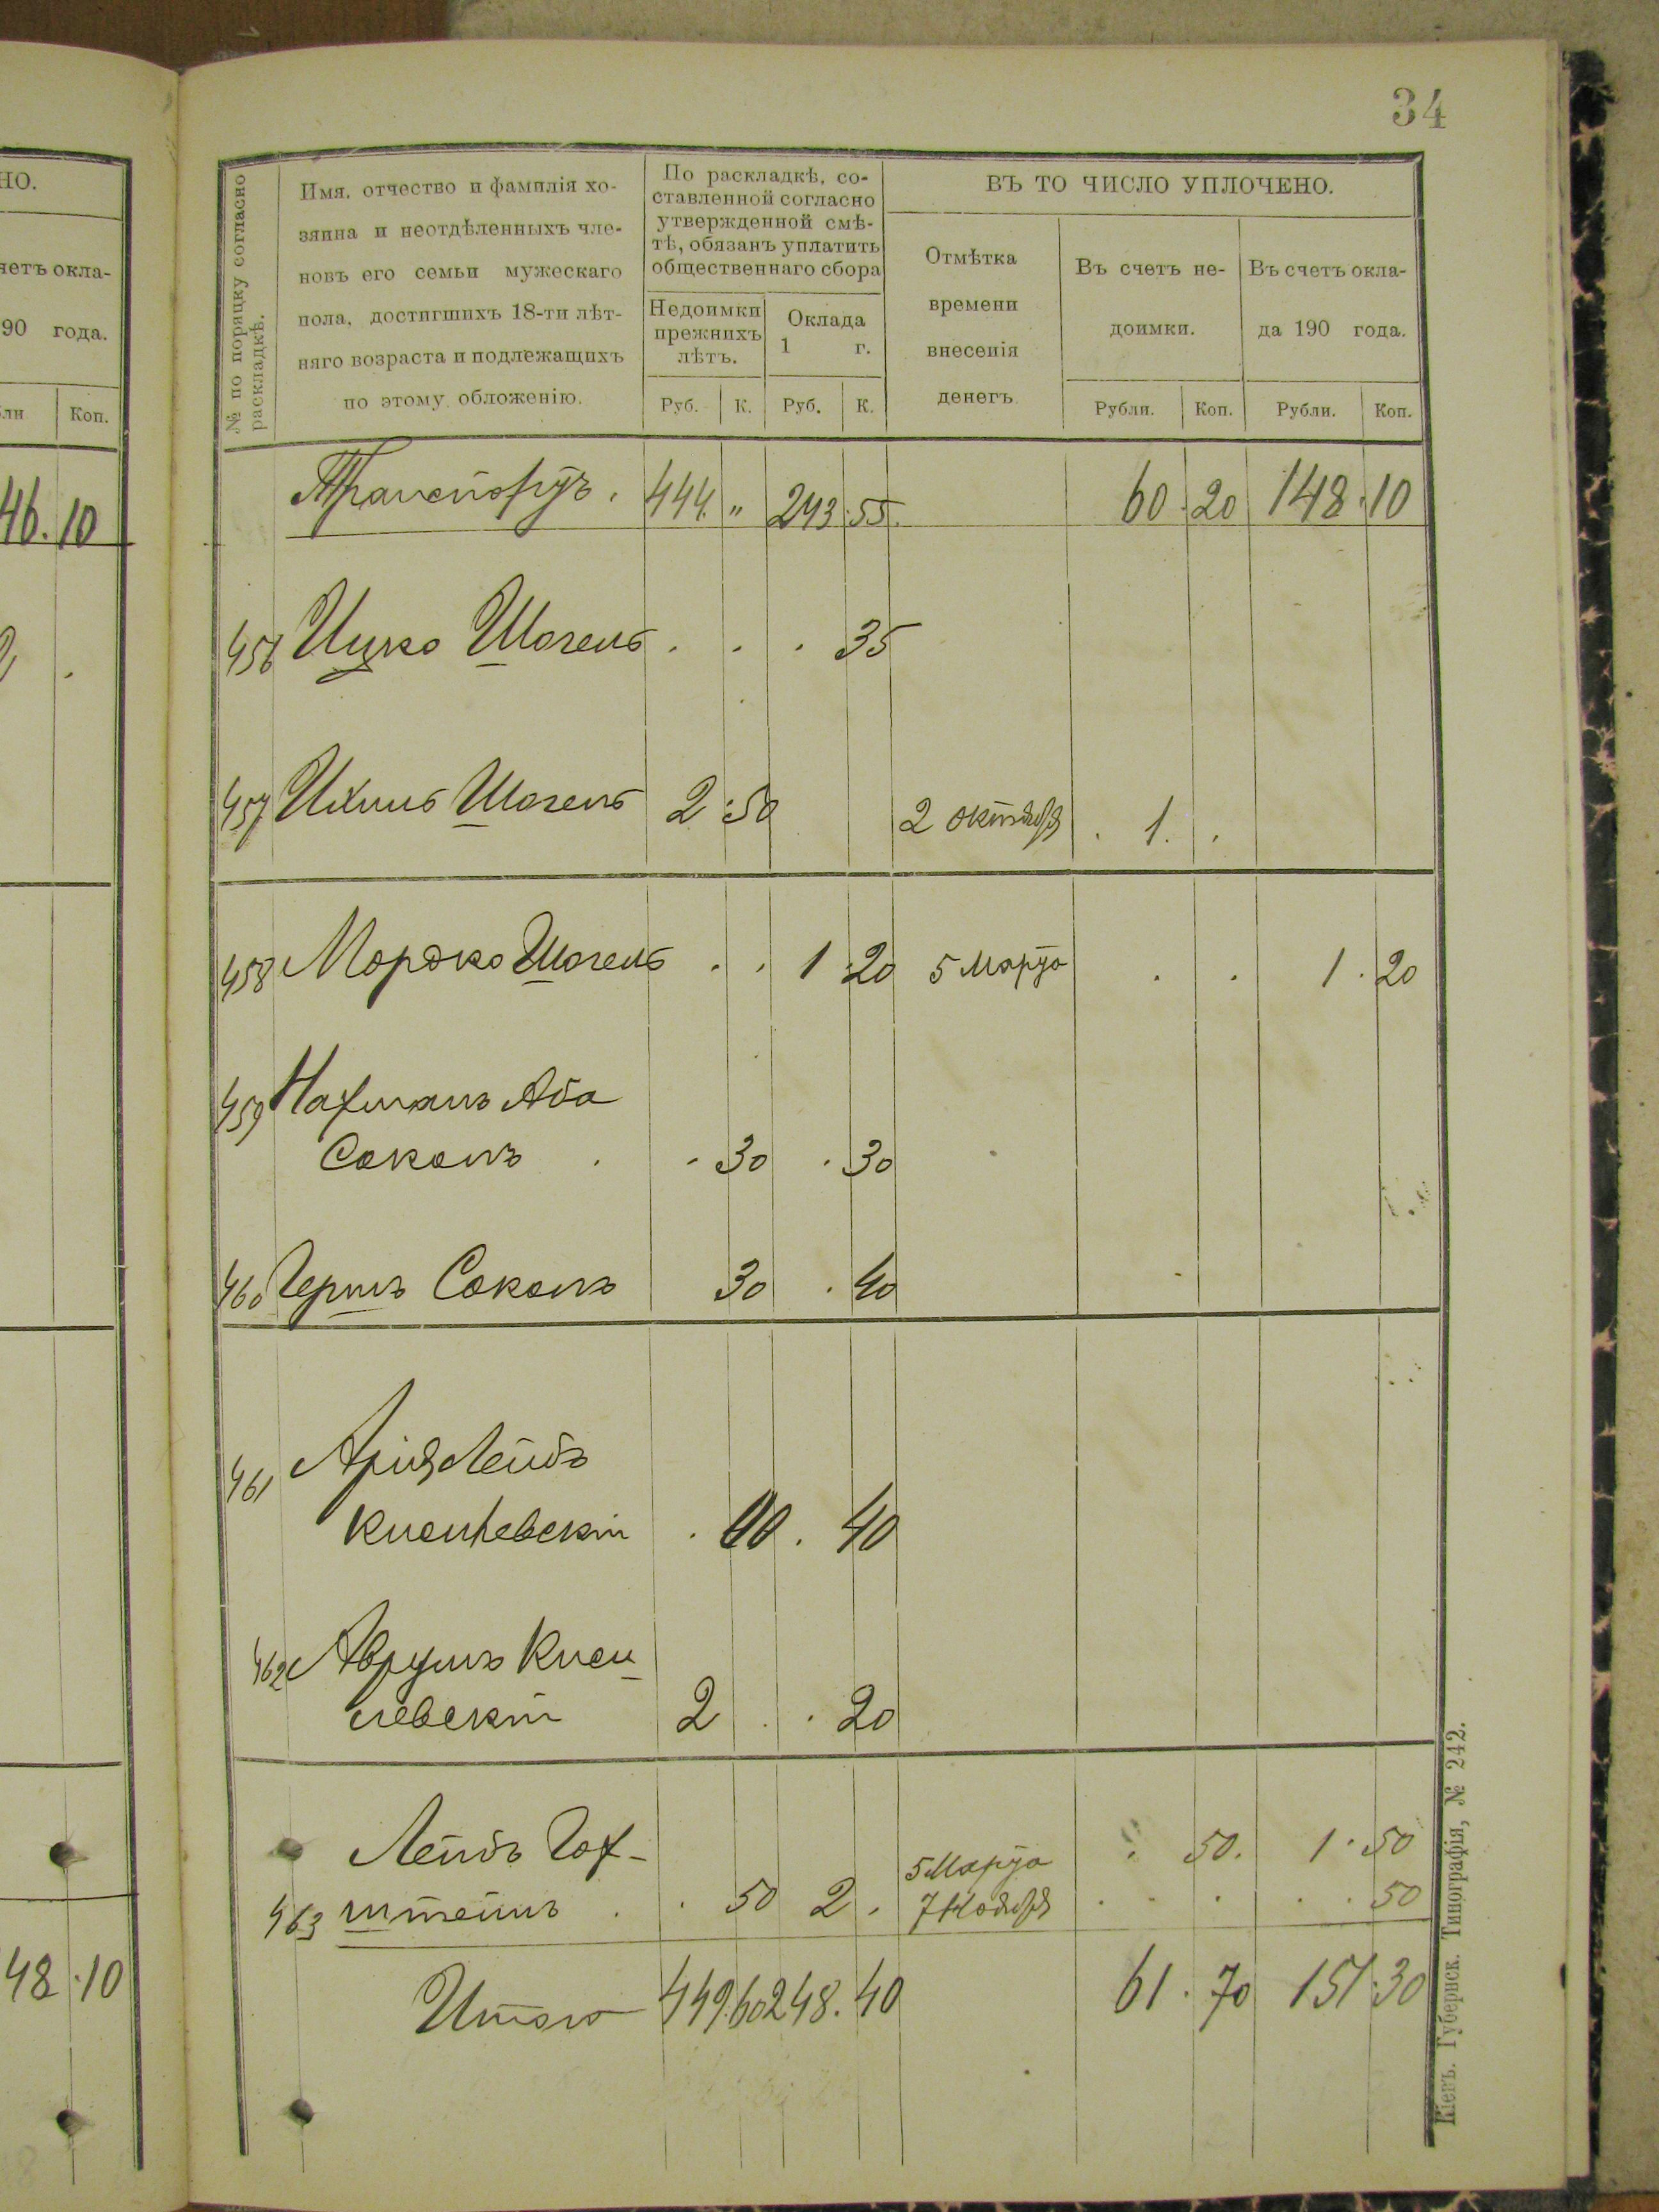 НО.
четъ окла-
90 года.
Коп.
46. 10
48 10
34
№ по порядку согласно раскладкѣ.
Имя, отчество и фамилія хо-
зяина и неотдѣленныхъ чле-
новъ его семьи мужескаго
пола, достигшихъ 18-ти лѣт-
няго возраста и подлежащихъ
по этому обложенію.
По раскладкѣ, со-
ставленной согласно
утвержденной смѣ-
тѣ, обязанъ уплатить
общественнаго сбора
Недоимки
прежнихъ
лѣтъ.
Оклада
1 г.
Руб. К. Руб. К.
ВЪ ТО ЧИСЛО УПЛОЧЕНО.
Отмѣтка
времени
внесенія
денегъ
Въ счетъ не-
доимки.
Въ счетъ окла-
да 190 года.
Рубли. Коп. Рубли. Коп.
Транспортъ. 444. „ 243.55. 60.20 148.10
456 Ицко Шогель . . . 35
457 Ихиль Шогель 2.50 2 октября . 1. .
458 Мордко Шогель . . 1.20 5 Марта . . 1.20
459 Нахманъ Аба
Соколъ . . 30 . 30
460 Гершъ Соколъ 30 . 40
461 Арія Лейбъ
Киселевскій . 40 . 40
462 Аврумъ Кисе
левскій 2 . . 20
Лейбъ Гох- 5 Марта . 50. 1.50
463 штейнъ . . 50 2. 7 Ноября . . . . . 50
Итого 449.60 248.40 61.70 151.30
Кіевъ. Губернск. Типографія, № 242.